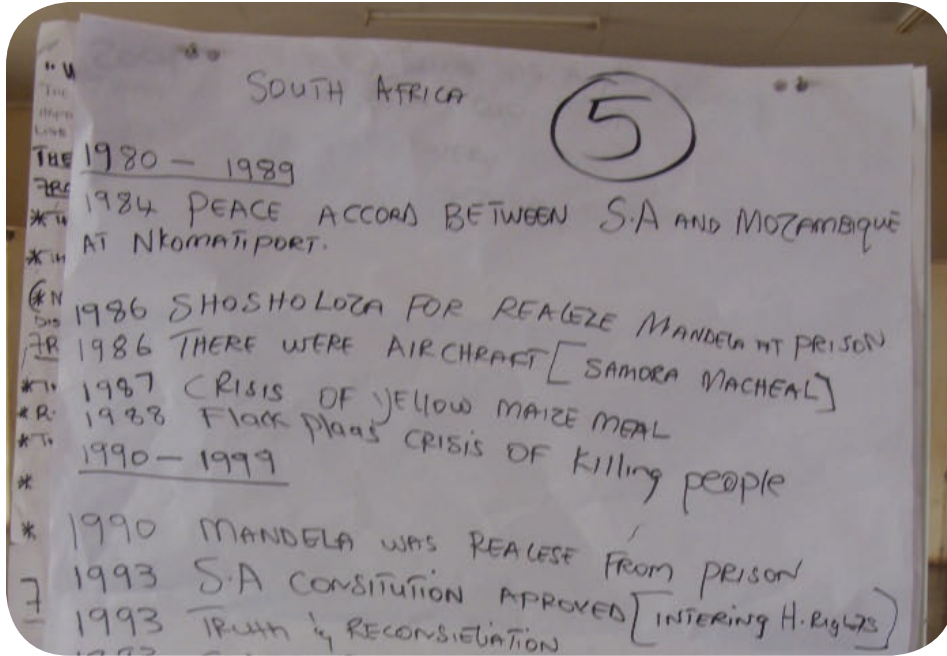 SOUTH AFRICA
5
1980 - 1989
1984 PEACE ACCORD BETWEEN S.A AND MOZAMBIQUE
AT NKOMATIPORT.
1986 SHOSHOLOZA FOR REALEZE MANDELA AT PRISON
1986 THERE WERE AIRCHRAFT [SAMORA MACHEAL]
1987 CRISIS OF YELLOW MAIZE MEAL
1988 Flack plaas CRISIS OF Killing people
1990 - 1999
1990 MANDELA WAS REALESE FROM PRISON
1993 S.A CONSITUTION APROVED [INTERING H.RIGHTS]
1993 TRUTH & RECONSILIATION
THE